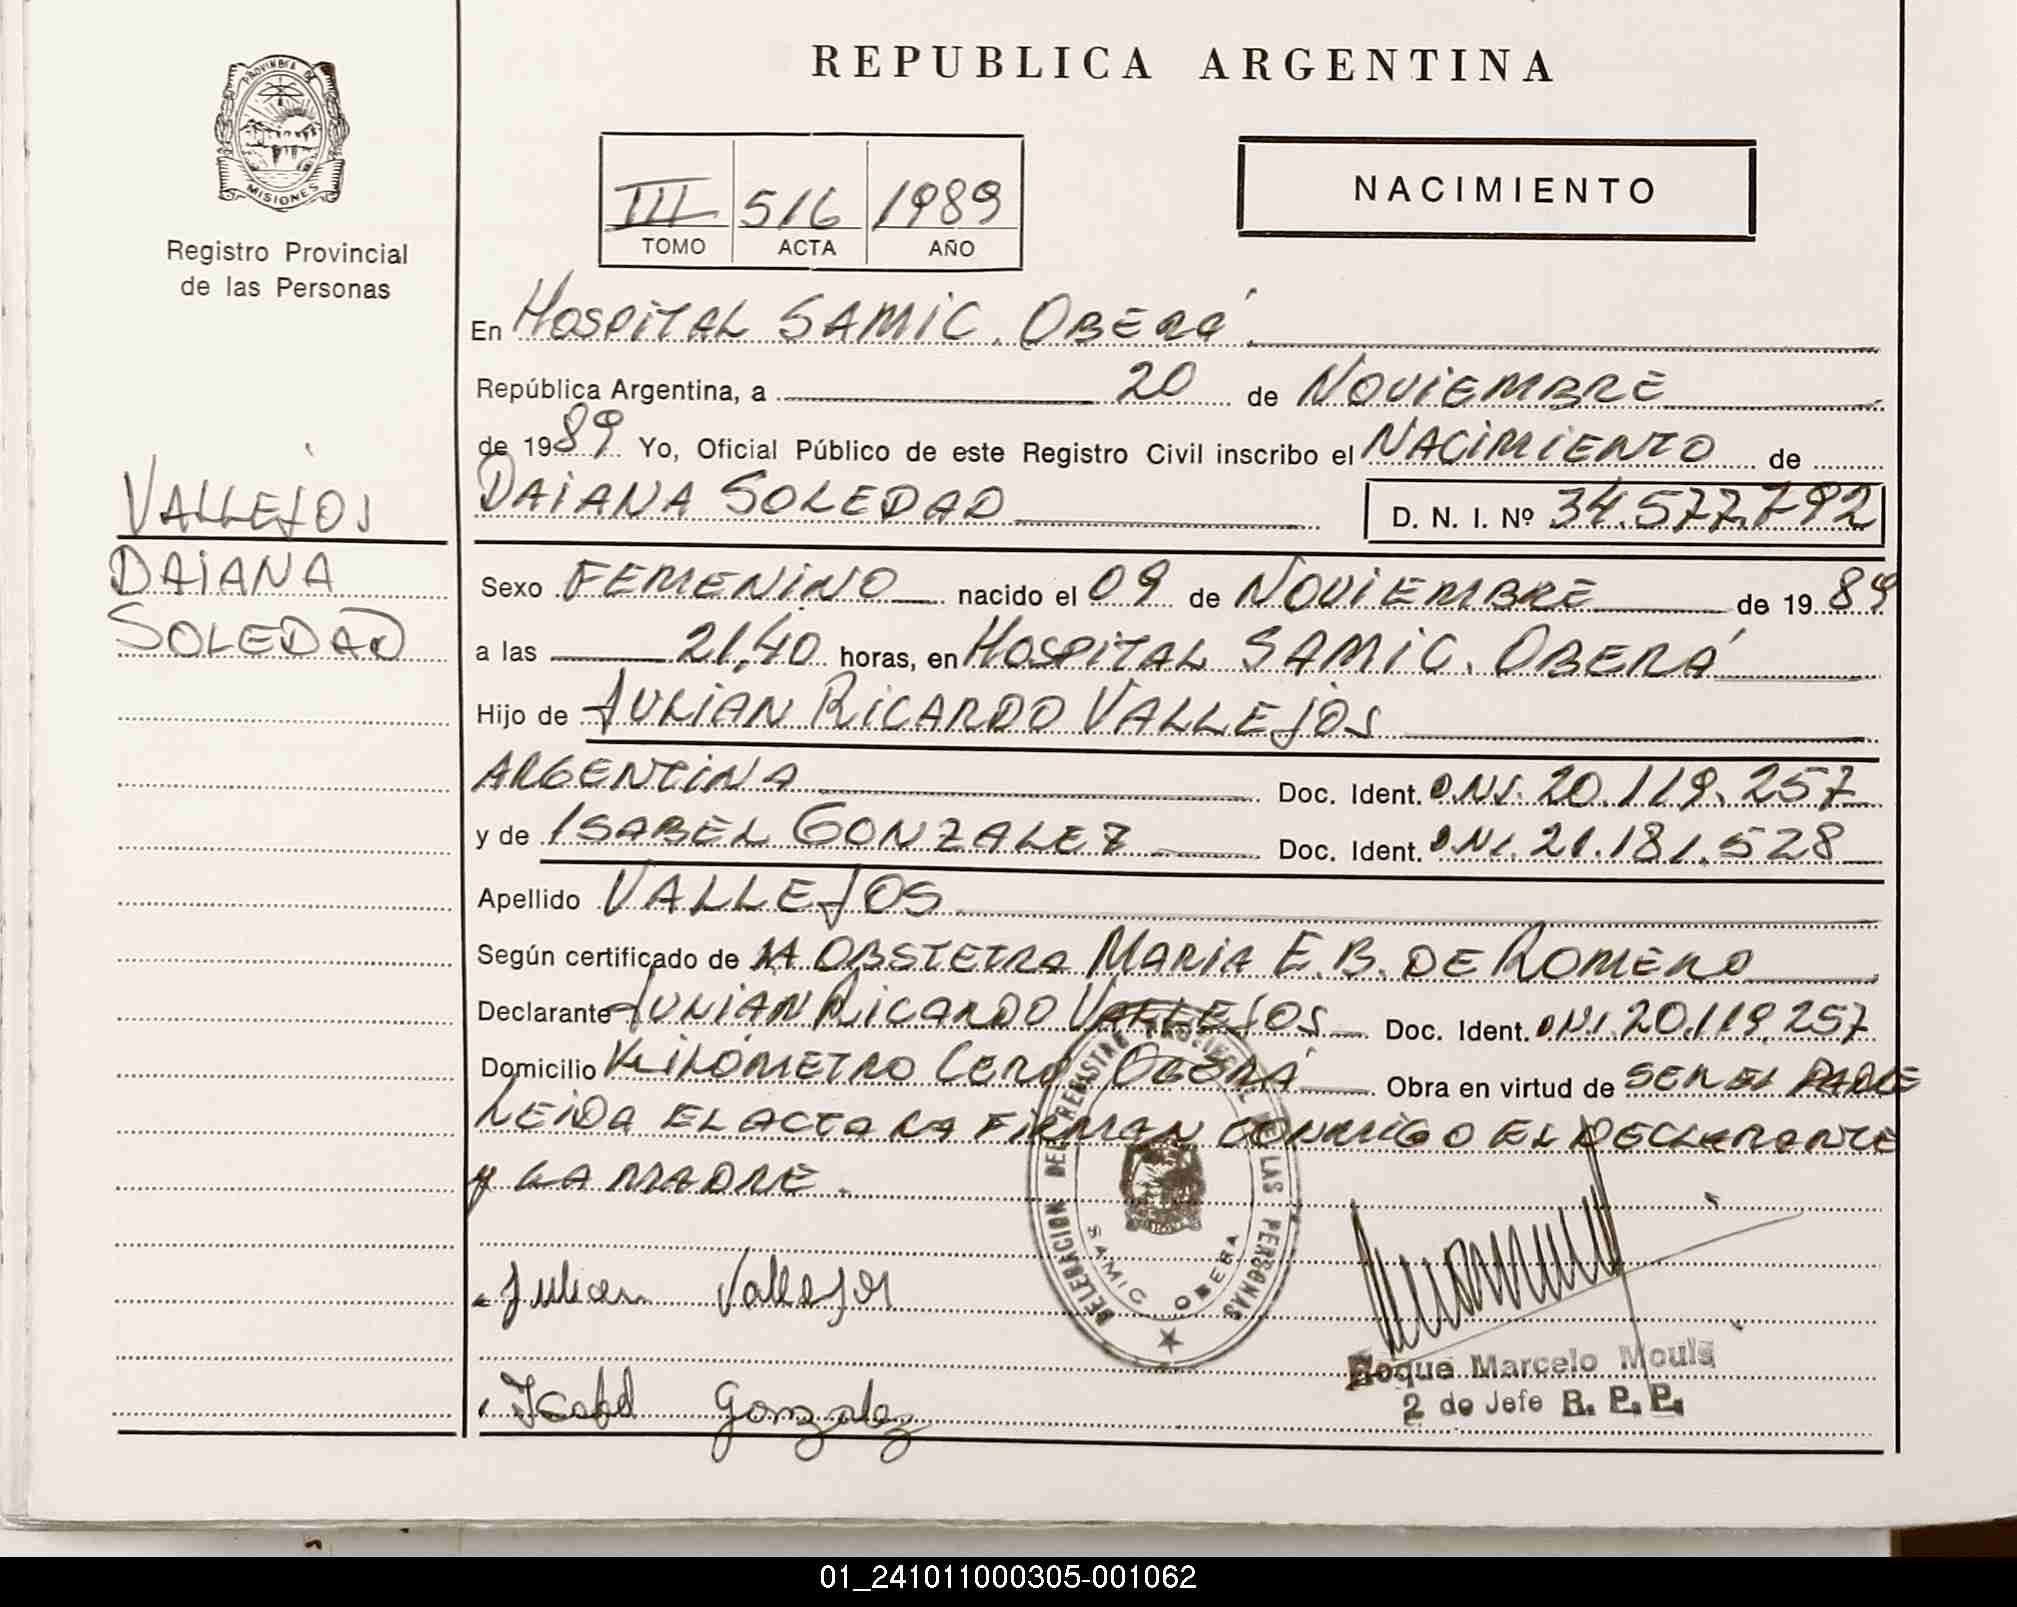 REPUBLICA ARGENTINA
PROVINCIA DE
MISIONES
Registro Provincial
de las Personas
III 516 1989
TOMO ACTA AÑO
NACIMIENTO
En HOSPITAL SAMIC. OBERÁ
República Argentina, a 20 de NOVIEMBRE
de 1989 Yo, Oficial Público de este Registro Civil inscribo el NACIMIENTO de
DAIANA SOLEDAD D. N. I. Nº 34.577.792
VALLEJOS
DAIANA
SOLEDAD
Sexo FEMENINO nacido el 09 de NOVIEMBRE de 1989
a las 21,40 horas, en HOSPITAL SAMIC. OBERÁ
Hijo de JULIÁN RICARDO VALLEJOS
ARGENTINA Doc. Ident. DNI. 20.119.257
y de ISABEL GONZALEZ Doc. Ident. DNI. 21.181.528
Apellido VALLEJOS
Según certificado de LA OBSTETRA MARIA E. B. DE ROMERO
Declarante JULIÁN RICARDO VALLEJOS Doc. Ident. DNI. 20.119.257
Domicilio KILÓMETRO CERO OBERÁ Obra en virtud de SER EL PADRE
LEIDA EL ACTA LA FIRMAN CONMIGO EL DECLARANTE
Y LA MADRE.
DELEGACION DEL REGISTRO PROVINCIAL DE LAS PERSONAS
SAMIC OBERA
Julian Vallejos
Roque Marcelo Mouls
2 do Jefe R. P. P.
Isabel Gonzalez
01_241011000305-001062